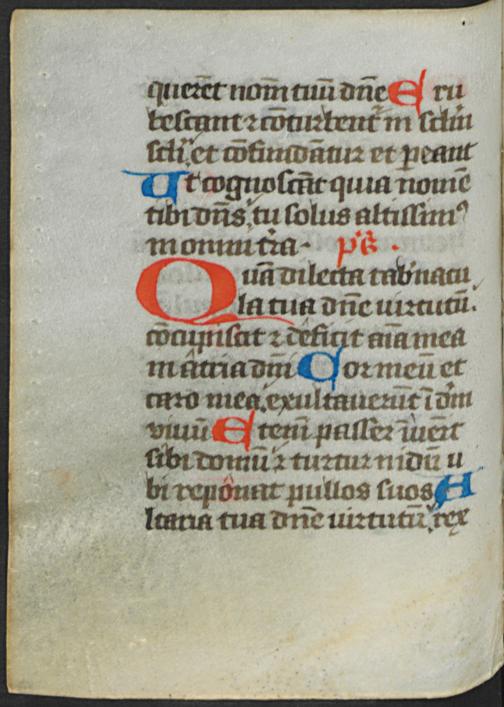 querēt nom̄ tuū dn̄e Eru
bescant ⁊ cōturbent̄ in sclm̄
scli et cōfundāntur et peant
Ut cognoscāt quia nomē
tibi dn̄s, tu solus altissimꝰ
in omni tr̄a. ps̄.
Quā dilecta tab̄nacu
la tua dn̄e uirtutū.
cōcupiscit ⁊ deficit aīa mea
in atria dn̄i Cor meū et
caro mea, exultauerūt ī dm̄
viuū Etem̄ passer īuēit
sibi domū ⁊ turtur nidū u
bi reponat pullos suos A
ltaria tua dn̄e uirtutū, rex